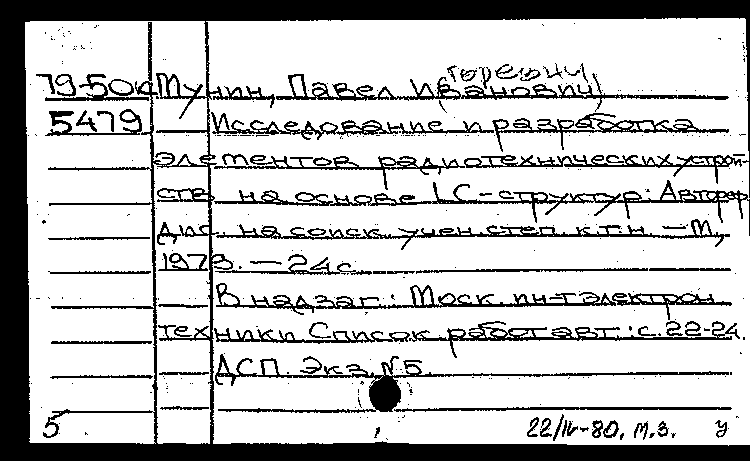 Горевич
79-50к Тунин, Павел (Иванович)
5479 Исследование и разработка
элементов радиотехнических устрой-
ств на основе LC-структур: Автореф.
дис. на соиск. учен. степ. к.т.н. — М.,
1978. — 24 с.
В надзаг.: Моск. ин-т электрон.
техники Список работ авт.: с. 22-24.
ДСП. Экз. №5.
5 22/IV-80. М.З. У